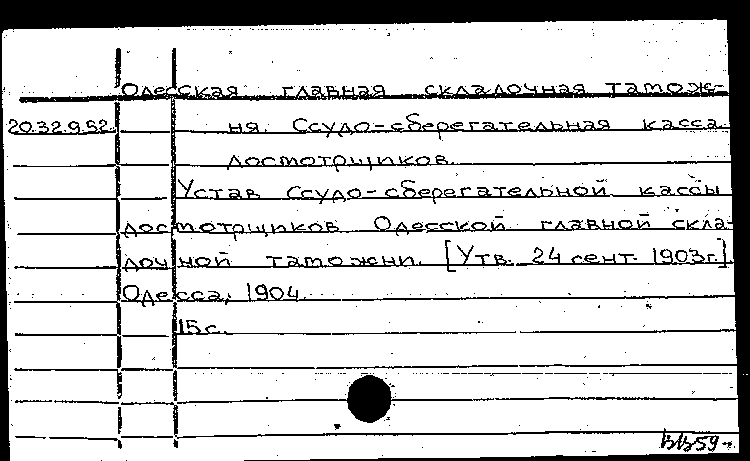 Одесская главная складочная тамож-
20.32.9.52. ня. Ссудо-сберегательная касса
досмотрщиков.
Устав Ссудо-сберегательной кассы
досмотрщиков Одесской главной скла-
дочной таможни. [Утв. 24 сент. 1903г.].
Одесса, 1904.
15 с.